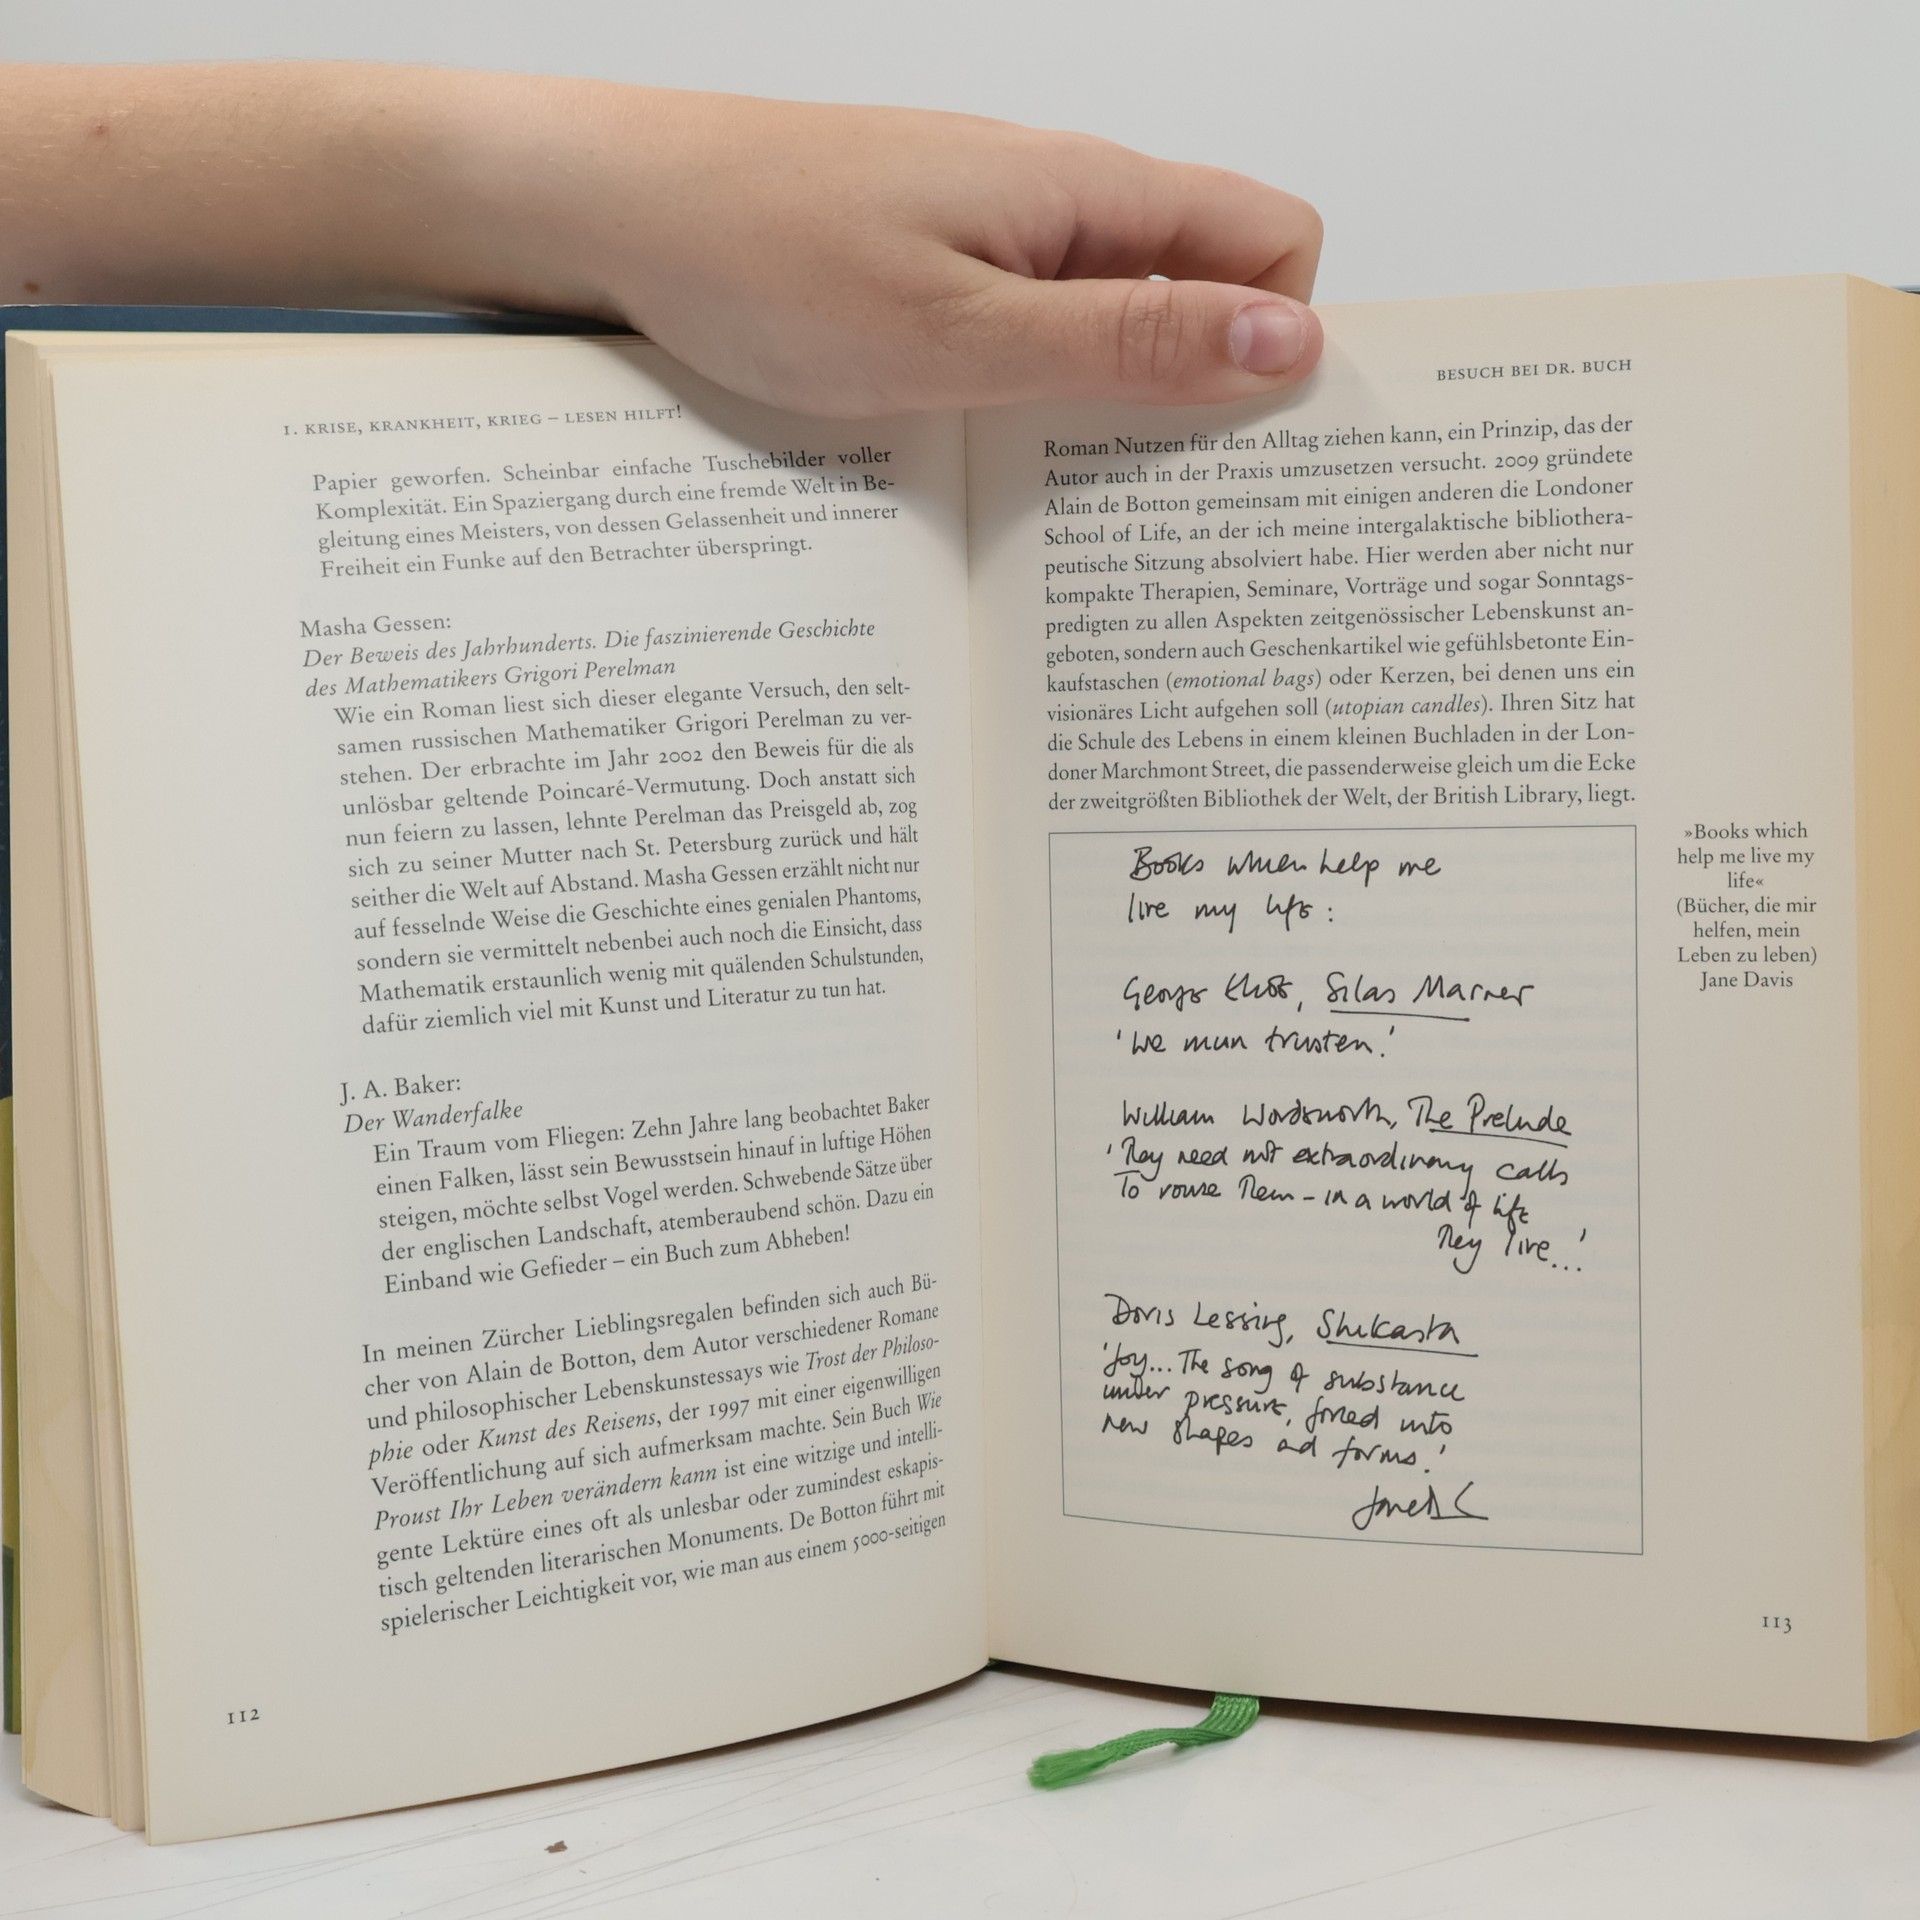 1. KRISE, KRANKHEIT, KRIEG – LESEN HILFT!
Papier geworfen. Scheinbar einfache Tuschebilder voller
Komplexität. Ein Spaziergang durch eine fremde Welt in Be-
gleitung eines Meisters, von dessen Gelassenheit und innerer
Freiheit ein Funke auf den Betrachter überspringt.
Masha Gessen:
Der Beweis des Jahrhunderts. Die faszinierende Geschichte
des Mathematikers Grigori Perelman
Wie ein Roman liest sich dieser elegante Versuch, den selt-
samen russischen Mathematiker Grigori Perelman zu ver-
stehen. Der erbrachte im Jahr 2002 den Beweis für die als
unlösbar geltende Poincaré-Vermutung. Doch anstatt sich
nun feiern zu lassen, lehnte Perelman das Preisgeld ab, zog
sich zu seiner Mutter nach St. Petersburg zurück und hält
seither die Welt auf Abstand. Masha Gessen erzählt nicht nur
auf fesselnde Weise die Geschichte eines genialen Phantoms,
sondern sie vermittelt nebenbei auch noch die Einsicht, dass
Mathematik erstaunlich wenig mit quälenden Schulstunden,
dafür ziemlich viel mit Kunst und Literatur zu tun hat.
J. A. Baker:
Der Wanderfalke
Ein Traum vom Fliegen: Zehn Jahre lang beobachtet Baker
einen Falken, lässt sein Bewusstsein hinauf in luftige Höhen
steigen, möchte selbst Vogel werden. Schwebende Sätze über
der englischen Landschaft, atemberaubend schön. Dazu ein
Einband wie Gefieder – ein Buch zum Abheben!
In meinen Zürcher Lieblingsregalen befinden sich auch Bü-
cher von Alain de Botton, dem Autor verschiedener Romane
und philosophischer Lebenskunstessays wie Trost der Philoso-
phie oder Kunst des Reisens, der 1997 mit einer eigenwilligen
Veröffentlichung auf sich aufmerksam machte. Sein Buch Wie
Proust Ihr Leben verändern kann ist eine witzige und intelli-
gente Lektüre eines oft als unlesbar oder zumindest eskapis-
tisch geltenden literarischen Monuments. De Botton führt mit
spielerischer Leichtigkeit vor, wie man aus einem 5000-seitigen
112
BESUCH BEI DR. BUCH
Roman Nutzen für den Alltag ziehen kann, ein Prinzip, das der
Autor auch in der Praxis umzusetzen versucht. 2009 gründete
Alain de Botton gemeinsam mit einigen anderen die Londoner
School of Life, an der ich meine intergalaktische bibliothera-
peutische Sitzung absolviert habe. Hier werden aber nicht nur
kompakte Therapien, Seminare, Vorträge und sogar Sonntags-
predigten zu allen Aspekten zeitgenössischer Lebenskunst an-
geboten, sondern auch Geschenkartikel wie gefühlsbetonte Ein-
kaufstaschen (emotional bags) oder Kerzen, bei denen uns ein
visionäres Licht aufgehen soll (utopian candles). Ihren Sitz hat
die Schule des Lebens in einem kleinen Buchladen in der Lon-
doner Marchmont Street, die passenderweise gleich um die Ecke
der zweitgrößten Bibliothek der Welt, der British Library, liegt.
Books which help me
live my life:
George Eliot, Silas Marner
'We mun trusten.'
William Wordsworth, The Prelude
'They need not extraordinary calls
To rouse them – in a world of life
They live...'
Doris Lessing, Shikasta
'Joy... The song of substance
under pressure, forced into
new shapes and forms.'
»Books which
help me live my
life«
(Bücher, die mir
helfen, mein
Leben zu leben)
Jane Davis
113